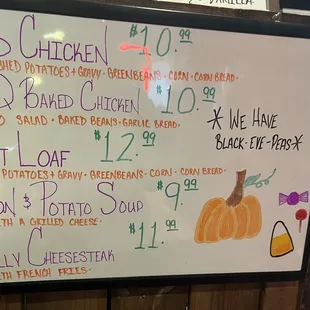 VANILLA
D CHICKEN $10.99
SHED POTATOES+GRAVY·GREENBEANS·CORN·CORN BREAD
Q BAKED CHICKEN $10.99
O SALAD · BAKED BEANS·GARLIC BREAD·
* WE HAVE
BLACK-EYE-PEAS*
T LOAF $12.99
POTATOES+GRAVY·GREENBEANS·CORN·CORN BREAD·
ON & POTATO SOUP $9.99
ITH A GRILLED CHEESE·
LLY CHEESESTEAK $11.99
ITH FRENCH FRIES·